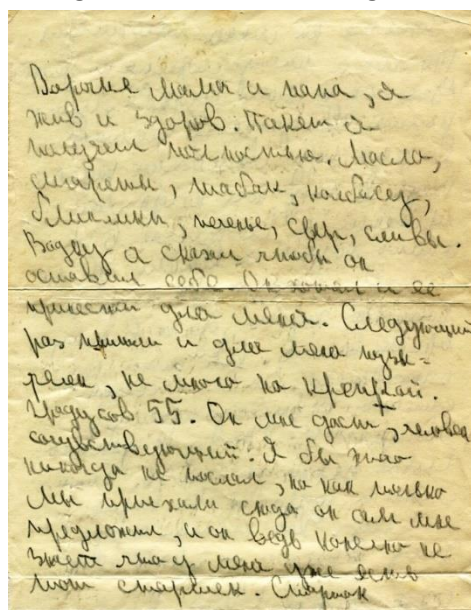 Дорогие мама и папа, я
жив и здоров. Пакет я
получил полностью. Масло,
сигареты, табак, колбасу,
блинчики, печенье, сыр, сливы.
Водку я сказал чтобы он
оставил себе. Он хотел и ее
принести для меня. Следующий
раз пришли и для меня пузы-
релек, не много но крепкой.
Градусов 55. Он мне даст, человек
сочувствующий. Я бы этого
никогда не послал, но как только
мы приехали сюда он сам мне
предложил, и он ведь конечно не
знает что у меня уже есть
тот старичек. Старичок